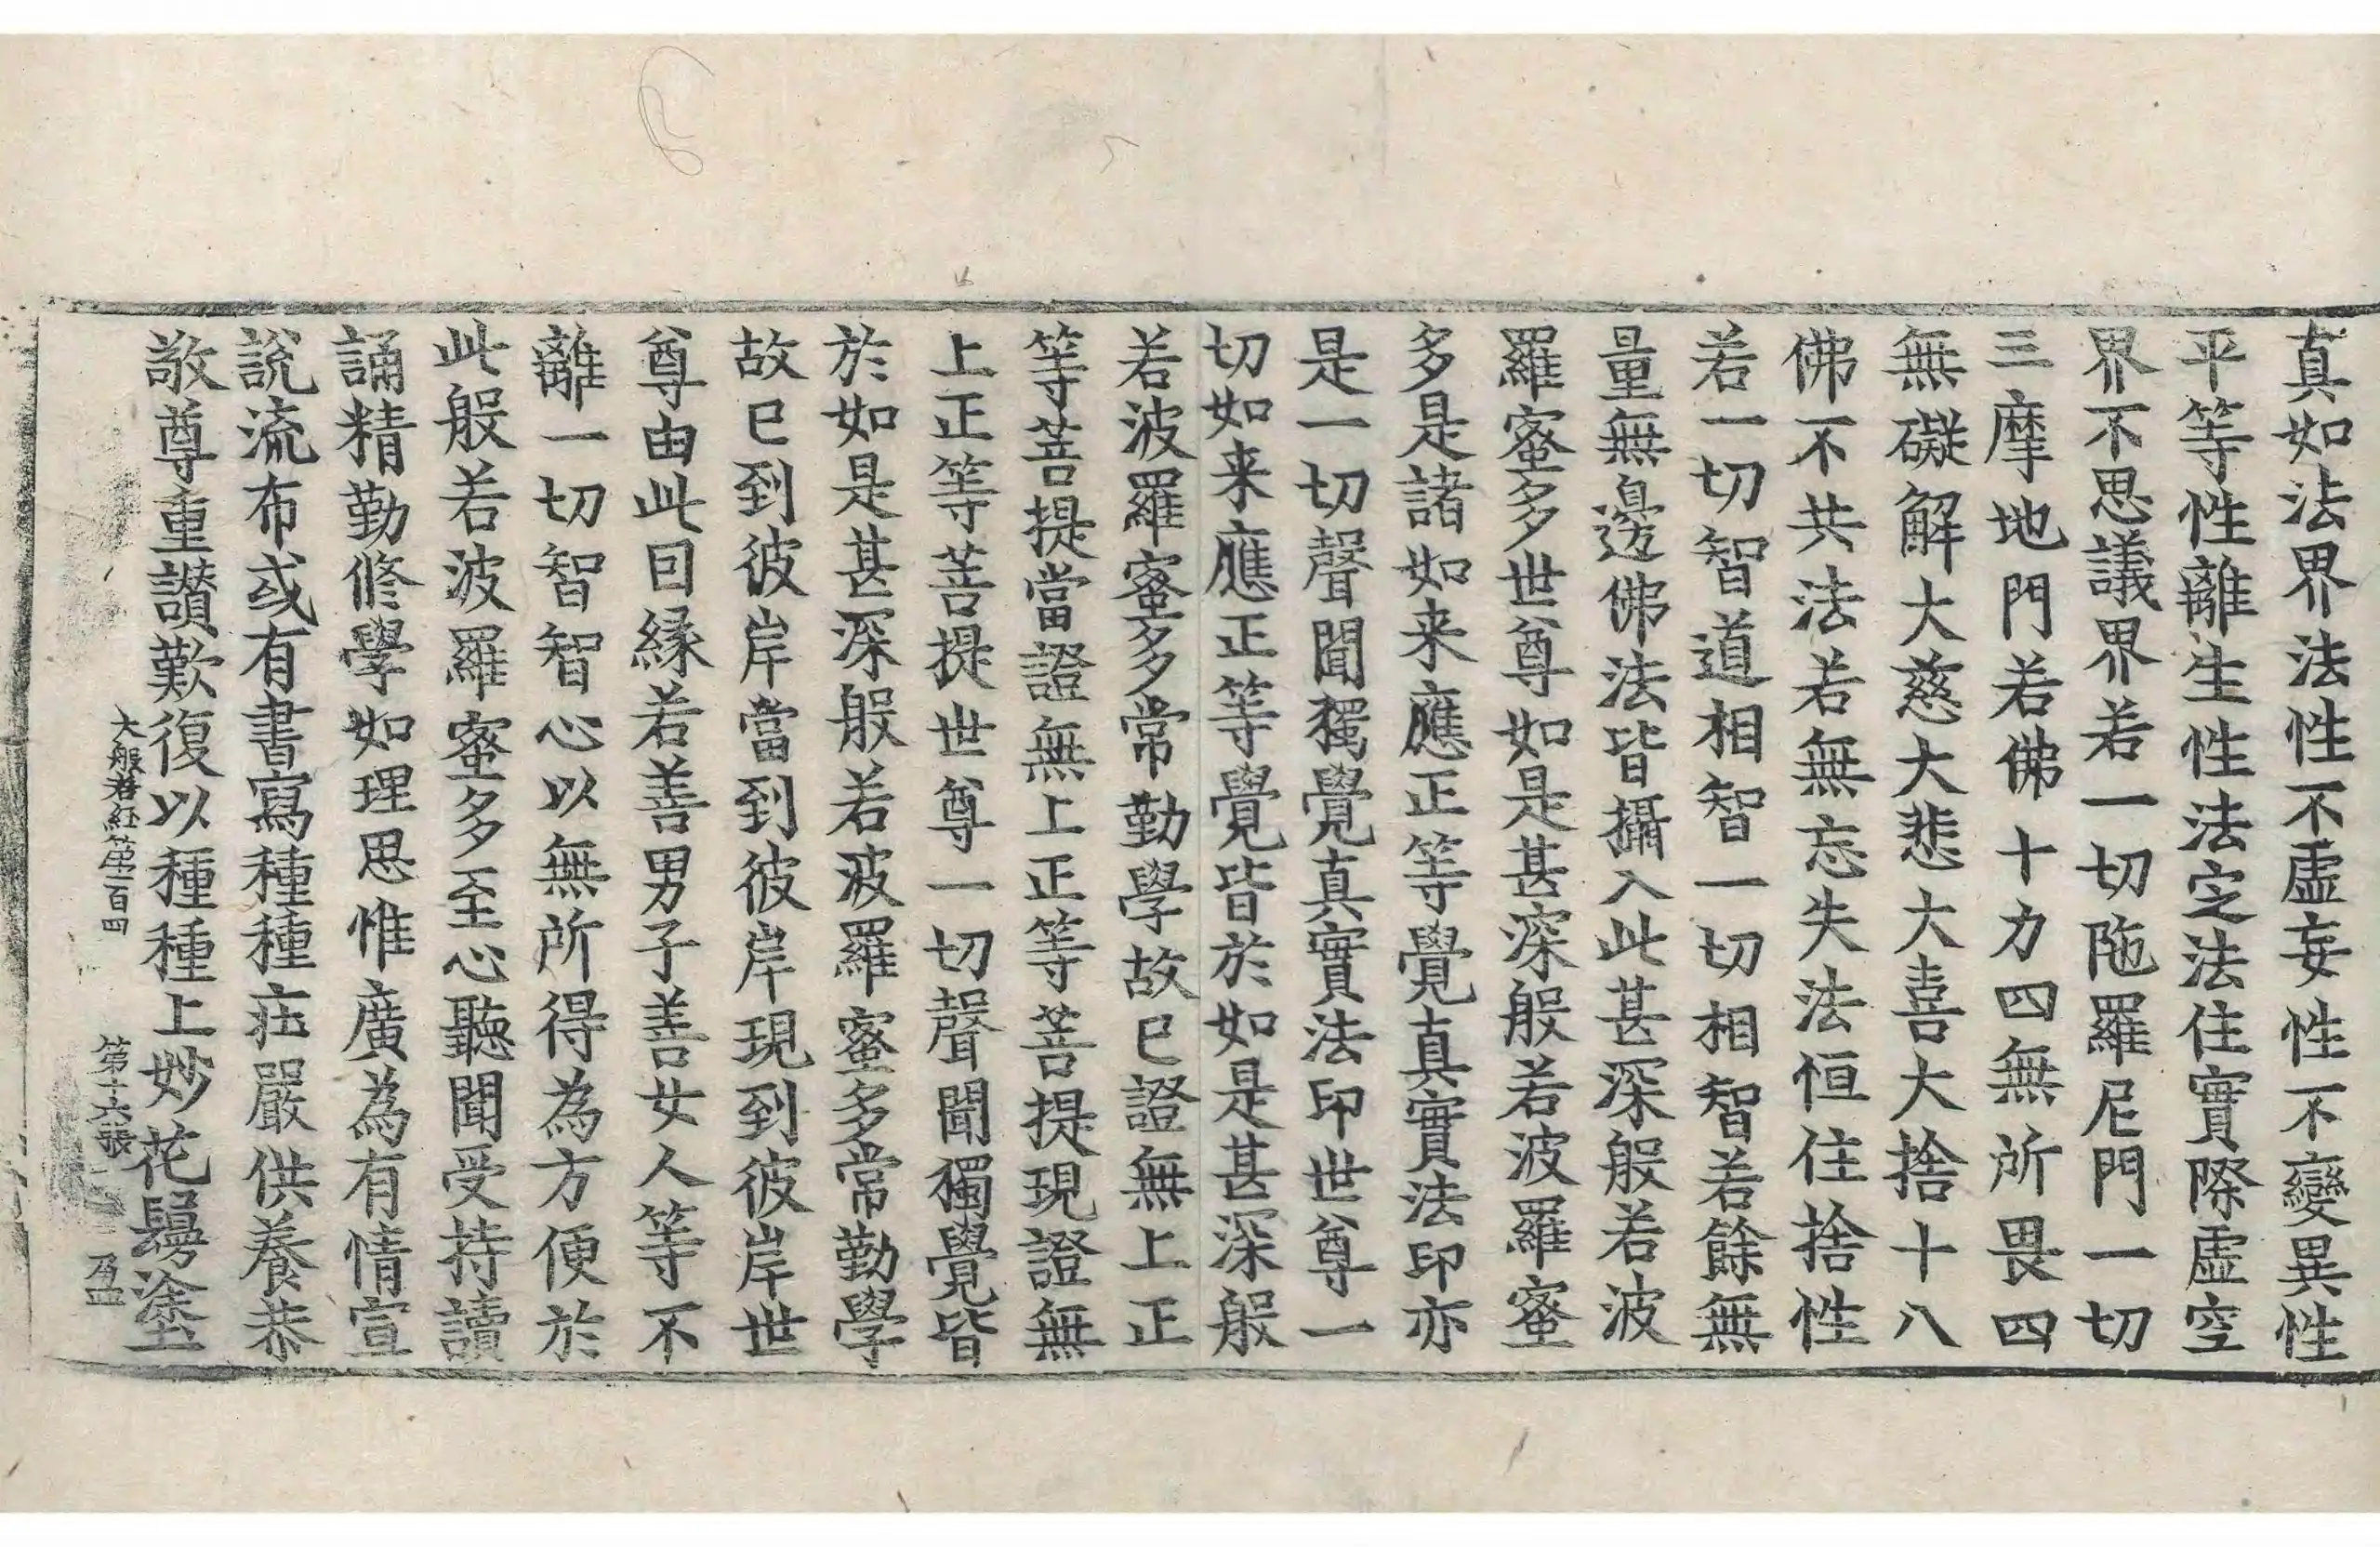 真如法界法性不虛妄性不變異性
平等性離生性法定法住實際虛空
界不思議界若一切陁羅尼門一切
三摩地門若佛十力四無所畏四
無礙解大慈大悲大喜大捨十八
佛不共法若無忘失法恒住捨性
若一切智道相智一切相智若餘無
量無邊佛法皆攝入此甚深般若波
羅蜜多世尊如是甚深般若波羅蜜
多是諸如来應正等覺真實法印亦
是一切聲聞獨覺真實法印世尊一
切如来應正等覺皆於如是甚深般
若波羅蜜多常勤學故已證無上正
等菩提當證無上正等菩提現證無
上正等菩提世尊一切聲聞獨覺皆
於如是甚深般若波羅蜜多常勤學
故已到彼岸當到彼岸現到彼岸世
尊由此因緣若善男子善女人等不
離一切智智心以無所得為方便於
此般若波羅蜜多至心聽聞受持讀
誦精勤修學如理思惟廣為有情宣
說流布或有書寫種種莊嚴供養恭
敬尊重讃歎復以種種上妙花鬘塗
大般若経第一百四 第十六張 盈